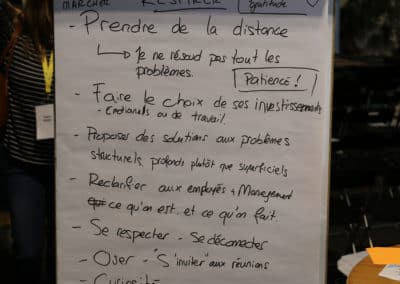 MARCHER RESPIRER Gratitude
- Prendre de la distance
↳ Je ne résoud pas tout les
problèmes.
Patience !
- Faire le choix de ses investissements
- Emotionels ou de travail.
- Proposer des solutions aux problèmes
structurels, profonds plutôt que superficiels
- Reclarifier aux employés + Management
ce qu'on est et ce qu'on fait.
- Se respecter - Se déconnecter
- Oser - "S'inviter" aux réunions
- Curiosité